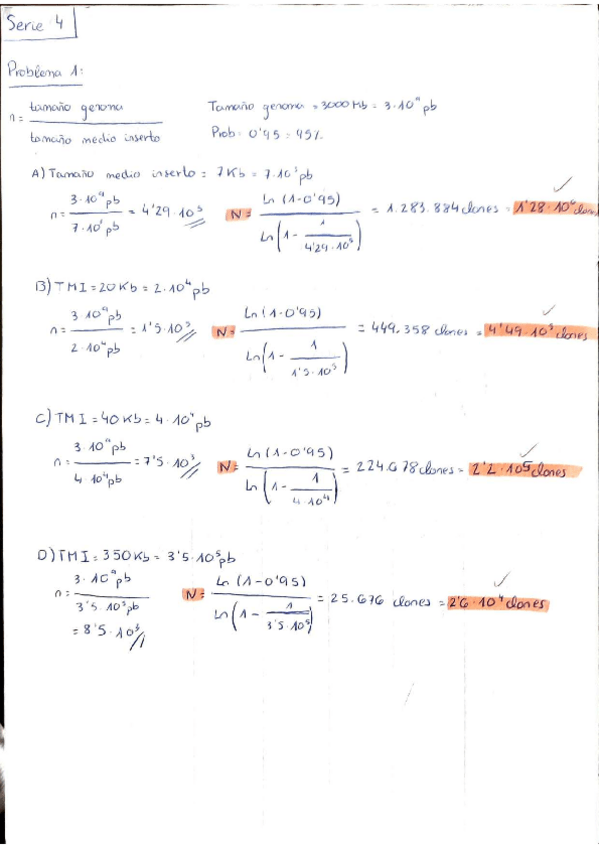 Serie 4
Problema 1:
n = tamaño genoma / tamaño medio inserto
Tamaño genoma = 3000 Mb = 3·10⁹ pb
Prob: 0'95 = 95%
A) Tamaño medio inserto = 7 Kb = 7·10³ pb
n = 3·10⁹ pb / 7·10³ pb = 4'29·10⁵ N = Ln (1-0'95) / Ln (1 - 1 / 4'29·10⁵) = 1.283.884 clones = 1'28·10⁶ clones ✓
B) TMI = 20 Kb = 2·10⁴ pb
n = 3·10⁹ pb / 2·10⁴ pb = 1'5·10⁵ N = Ln (1-0'95) / Ln (1 - 1 / 1'5·10⁵) = 449.358 clones = 4'49·10⁵ clones ✓
C) TMI = 40 Kb = 4·10⁴ pb
n = 3·10⁹ pb / 4·10⁴ pb = 7'5·10³ N = Ln (1-0'95) / Ln (1 - 1 / 4·10⁴) = 224.678 clones = 2'2·10⁵ clones ✓
D) TMI = 350 Kb = 3'5·10⁵ pb
n = 3·10⁹ pb / 3'5·10⁵ pb N = Ln (1-0'95) / Ln (1 - 1 / 3'5·10⁵) = 25.676 clones = 2'6·10⁴ clones ✓
= 8'5·10³